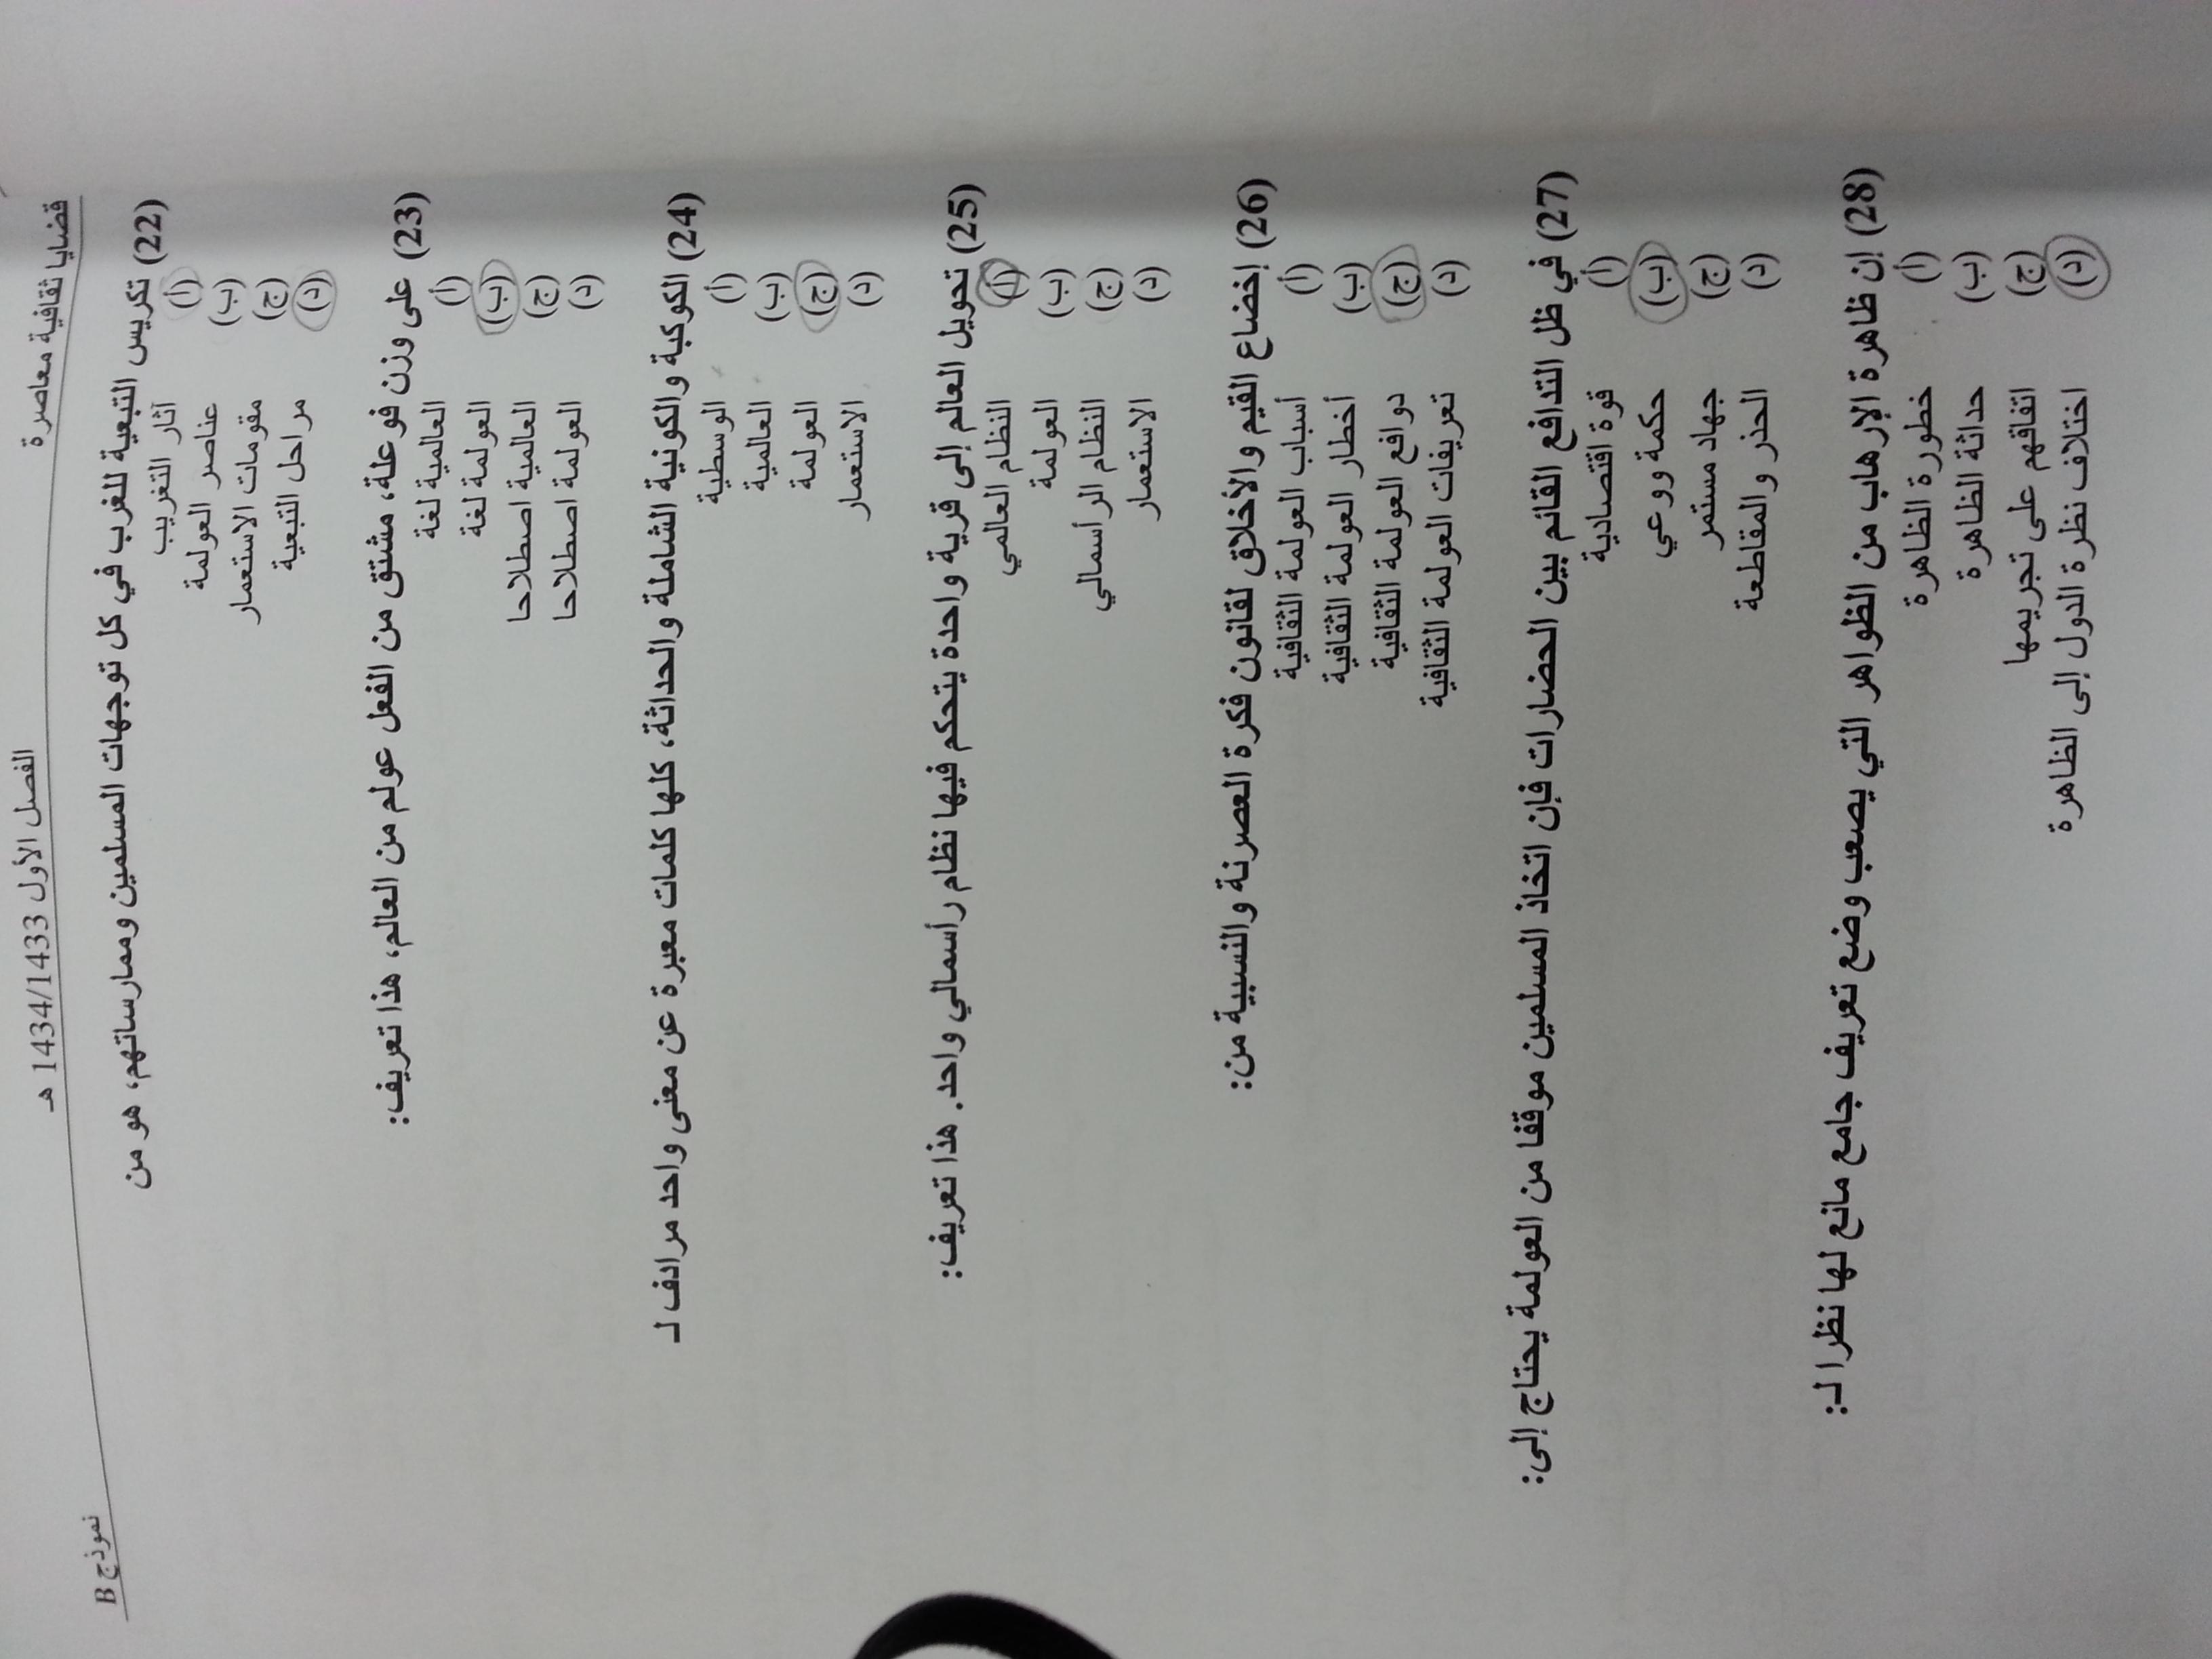 قضايا ثقافية معاصرة
الفصل الأول 1434/1433 هـ
نموذج B
(22) تكريس التبعية للغرب في كل توجهات المسلمين وممارساتهم، هو من
(أ) آثار التغريب
(ب) عناصر العولمة
(ج) مقومات الاستعمار
(د) مراحل التبعية
(23) على وزن فوعلة، مشتق من الفعل عولم من العالم، هذا تعريف:
(أ) العالمية لغة
(ب) العولمة لغة
(ج) العالمية اصطلاحا
(د) العولمة اصطلاحا
(24) الكوكبة والكونية الشاملة والحداثة، كلها كلمات معبرة عن معنى واحد مرادف لـ
(أ) الوسطية
(ب) العالمية
(ج) العولمة
(د) الاستعمار
(25) تحويل العالم إلى قرية واحدة يتحكم فيها نظام رأسمالي واحد. هذا تعريف:
(أ) النظام العالمي
(ب) العولمة
(ج) النظام الرأسمالي
(د) الاستعمار
(26) إخضاع القيم والأخلاق لقانون فكرة العصرنة والنسبية من:
(أ) أسباب العولمة الثقافية
(ب) أخطار العولمة الثقافية
(ج) دوافع العولمة الثقافية
(د) تعريفات العولمة الثقافية
(27) في ظل التدافع القائم بين الحضارات فإن اتخاذ المسلمين موقفا من العولمة يحتاج إلى:
(أ) قوة اقتصادية
(ب) حكمة ووعي
(ج) جهاد مستمر
(د) الحذر والمقاطعة
(28) إن ظاهرة الإرهاب من الظواهر التي يصعب وضع تعريف جامع مانع لها نظرا لـ:
(أ) خطورة الظاهرة
(ب) حداثة الظاهرة
(ج) اتفاقهم على تجريمها
(د) اختلاف نظرة الدول إلى الظاهرة